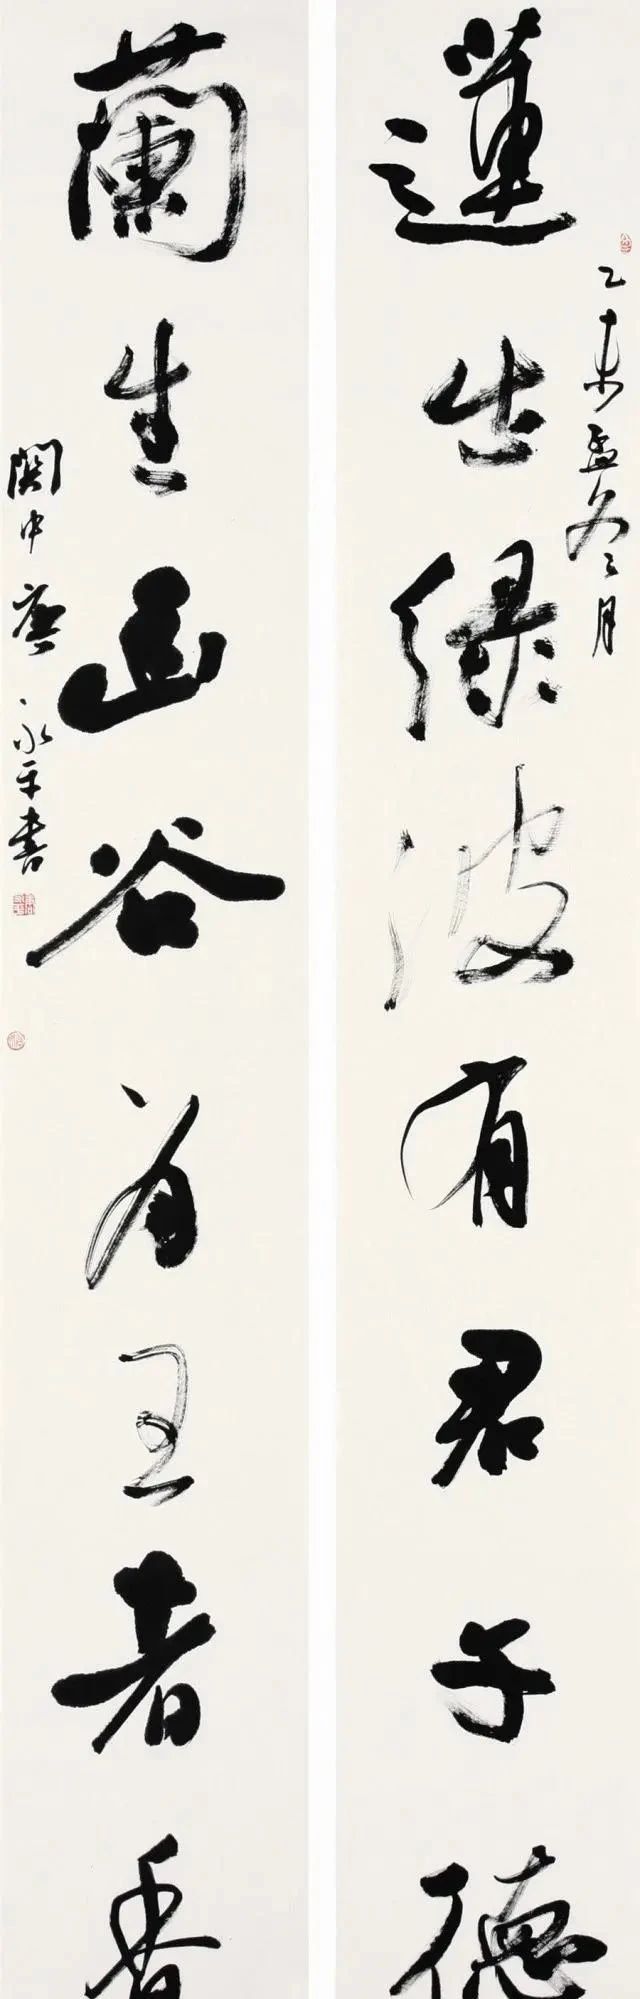 蓮出绿波有君子德
乙未孟冬之月
蘭生幽谷为王者香
関中唐永平書